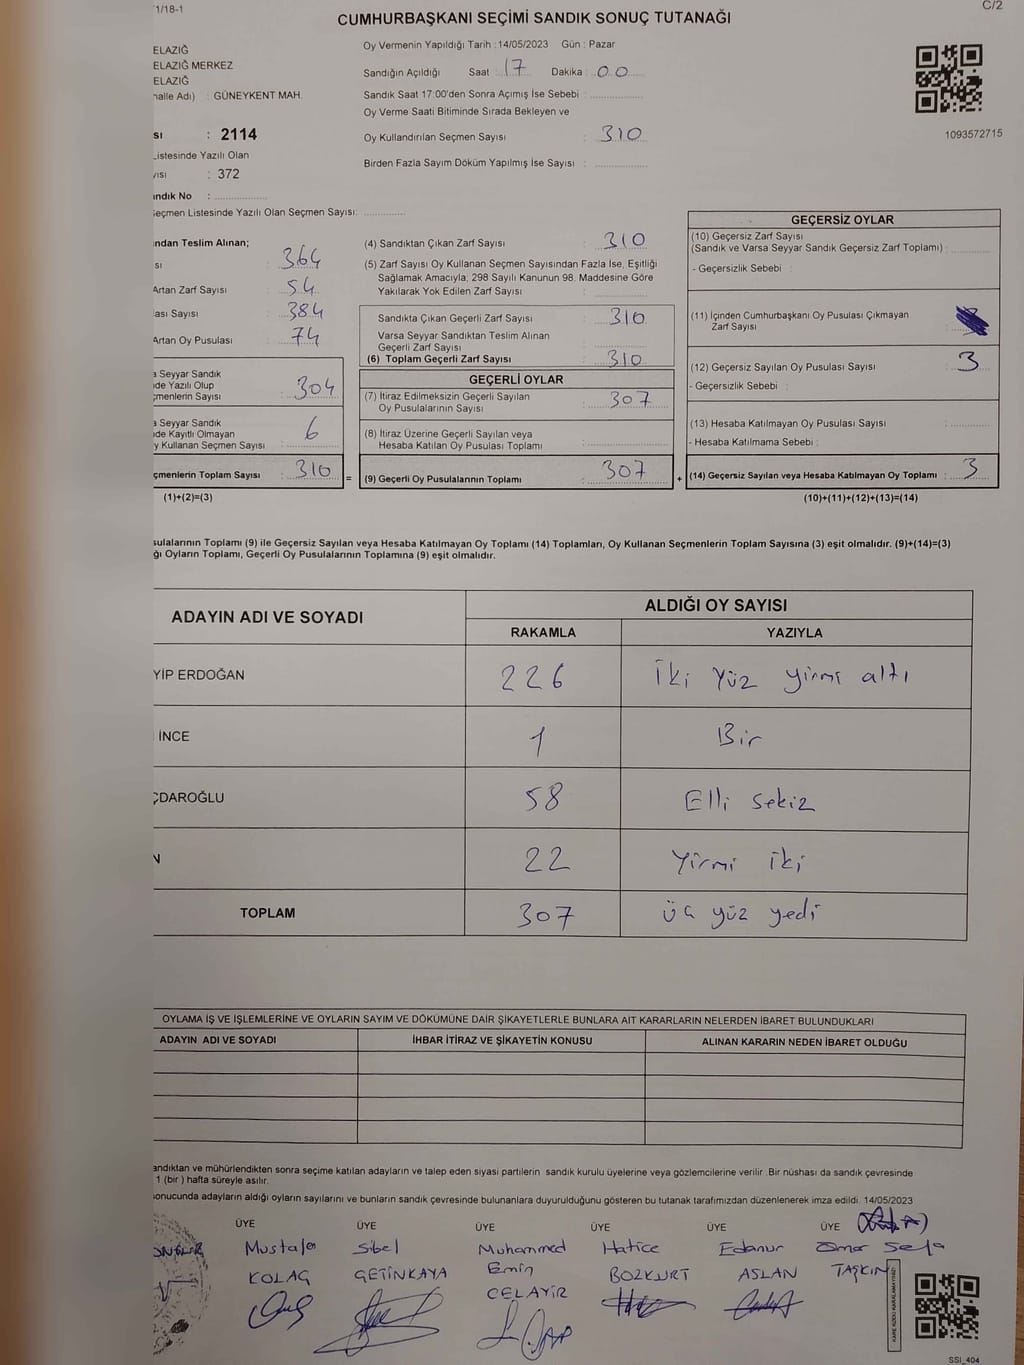 1/18-1
C/2
CUMHURBAŞKANI SEÇİMİ SANDIK SONUÇ TUTANAĞI
ELAZIĞ
ELAZIĞ MERKEZ
ELAZIĞ
halle Adı) : GÜNEYKENT MAH.
SI : 2114
Listesinde Yazılı Olan
yısı : 372
andık No :
eçmen Listesinde Yazılı Olan Seçmen Sayısı:
Oy Vermenin Yapıldığı Tarih : 14/05/2023 Gün : Pazar
Sandığın Açıldığı Saat : 17 Dakika : 00
Sandık Saat 17:00'den Sonra Açımış İse Sebebi :
Oy Verme Saati Bitiminde Sırada Bekleyen ve
Oy Kullandırılan Seçmen Sayısı : 310
Birden Fazla Sayım Döküm Yapılmış İse Sayısı :
1093572715
ından Teslim Alınan;
sı : 364
Artan Zarf Sayısı : 54
ası Sayısı : 384
Artan Oy Pusulası : 74
a Seyyar Sandık
de Yazılı Olup
çmenlerin Sayısı : 304
a Seyyar Sandık
de Kayıtlı Olmayan
y Kullanan Seçmen Sayısı : 6
çmenlerin Toplam Sayısı : 310 =
(1)+(2)=(3)
(4) Sandıktan Çıkan Zarf Sayısı : 310
(5) Zarf Sayısı Oy Kullanan Seçmen Sayısından Fazla İse, Eşitliği
Sağlamak Amacıyla; 298 Sayılı Kanunun 98. Maddesine Göre
Yakılarak Yok Edilen Zarf Sayısı :
Sandıkta Çıkan Geçerli Zarf Sayısı : 310
Varsa Seyyar Sandıktan Teslim Alınan
Geçerli Zarf Sayısı :
(6) Toplam Geçerli Zarf Sayısı : 310
GEÇERLİ OYLAR
(7) İtiraz Edilmeksizin Geçerli Sayılan
Oy Pusulalarının Sayısı : 307
(8) İtiraz Üzerine Geçerli Sayılan veya
Hesaba Katılan Oy Pusulası Toplamı :
(9) Geçerli Oy Pusulalarının Toplamı : 307 +
GEÇERSİZ OYLAR
(10) Geçersiz Zarf Sayısı
(Sandık ve Varsa Seyyar Sandık Geçersiz Zarf Toplamı) :
- Geçersizlik Sebebi :
(11) İçinden Cumhurbaşkanı Oy Pusulası Çıkmayan
Zarf Sayısı :
(12) Geçersiz Sayılan Oy Pusulası Sayısı : 3
- Geçersizlik Sebebi :
(13) Hesaba Katılmayan Oy Pusulası Sayısı :
- Hesaba Katılmama Sebebi :
(14) Geçersiz Sayılan veya Hesaba Katılmayan Oy Toplamı : 3
(10)+(11)+(12)+(13)=(14)
sulalarının Toplamı (9) ile Geçersiz Sayılan veya Hesaba Katılmayan Oy Toplamı (14) Toplamları, Oy Kullanan Seçmenlerin Toplam Sayısına (3) eşit olmalıdır. (9)+(14)=(3)
ğı Oyların Toplamı, Geçerli Oy Pusulalarının Toplamına (9) eşit olmalıdır.
ADAYIN ADI VE SOYADI
ALDIĞI OY SAYISI
RAKAMLA YAZIYLA
YİP ERDOĞAN 226 İki Yüz yirmi altı
İNCE 1 Bir
ÇDAROĞLU 58 Elli sekiz
N 22 Yirmi iki
TOPLAM 307 üç yüz yedi
OYLAMA İŞ VE İŞLEMLERİNE VE OYLARIN SAYIM VE DÖKÜMÜNE DAİR ŞİKAYETLERLE BUNLARA AİT KARARLARIN NELERDEN İBARET BULUNDUKLARI
ADAYIN ADI VE SOYADI İHBAR İTİRAZ VE ŞİKAYETİN KONUSU ALINAN KARARIN NEDEN İBARET OLDUĞU
andıktan ve mühürlendikten sonra seçime katılan adayların ve talep eden siyasi partilerin sandık kurulu üyelerine veya gözlemcilerine verilir. Bir nüshası da sandık çevresinde
1 (bir) hafta süreyle asılır.
sonucunda adayların aldığı oyların sayılarını ve bunların sandık çevresinde bulunanlara duyurulduğunu gösteren bu tutanak tarafımızdan düzenlenerek imza edildi. 14/05/2023
ÜYE ÜYE ÜYE ÜYE ÜYE ÜYE
Mustafa Sibel Muhammed Hatice Edanur Ömer Sefa
KOLAG ÇETİNKAYA Emin BOZKURT ASLAN TAŞKIN
CELAYİR
KARE KODU KARALAMAYINIZ!
SSI_404